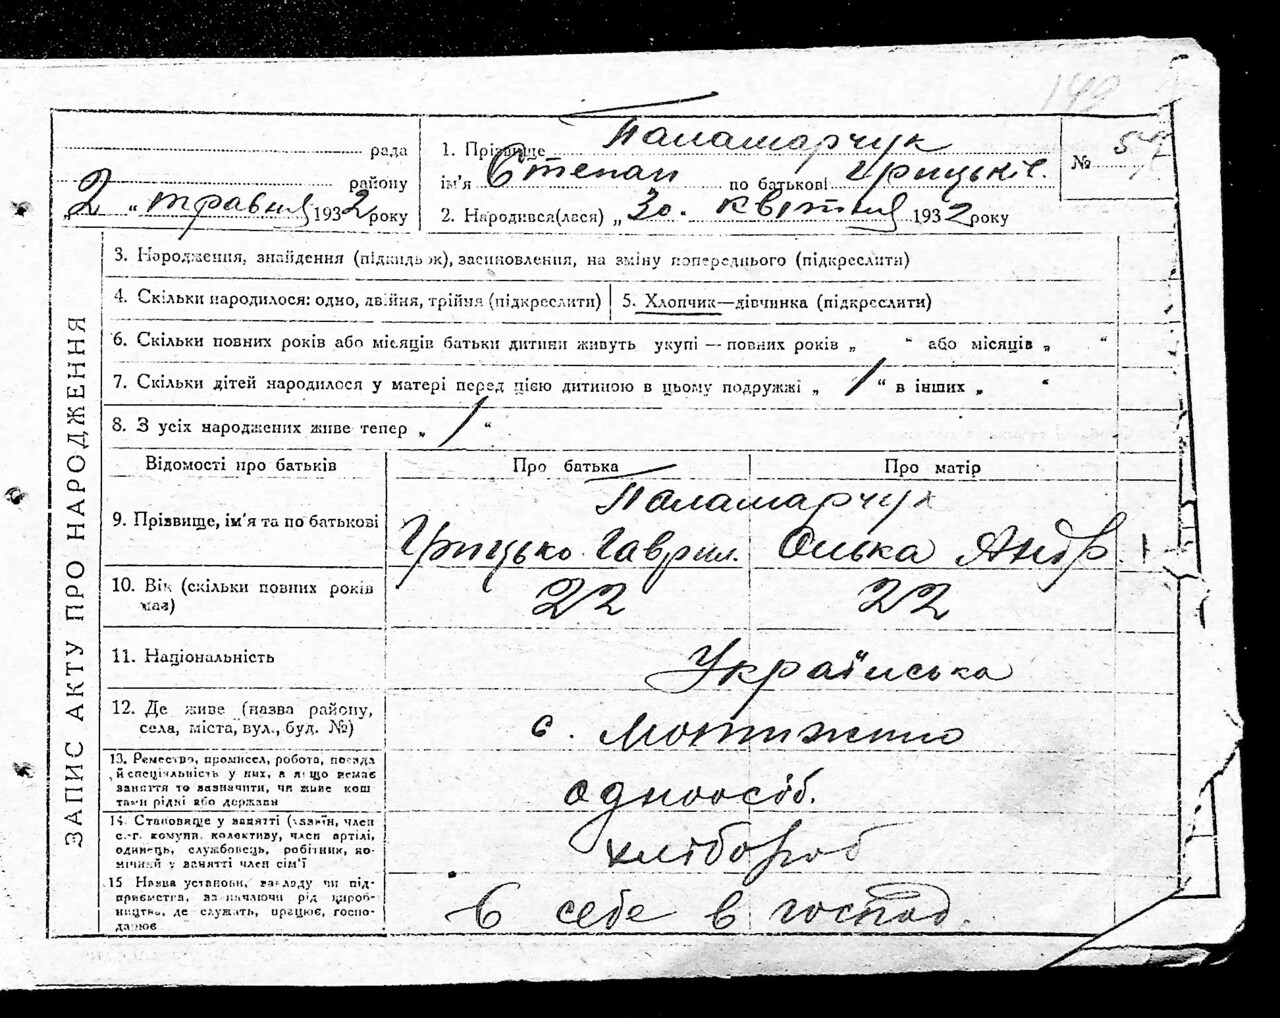 149
рада
району
„ 2 “ травня 1932 року
1. Прізвище Паламарчук
ім'я Степан по батькові Грицьків.
2. Народився(лася) „ 30. квітня 1932 року
№ 57
ЗАПИС АКТУ ПРО НАРОДЖЕННЯ
3. Народження, знайдення (підкидьок), засиновлення, на зміну попереднього (підкреслити)
4. Скільки народилося: одно, двійня, трійня (підкреслити)
5. Хлопчик—дівчинка (підкреслити)
6. Скільки повних років або місяців батьки дитини живуть укупі — повних років „ “ або місяців „ “
7. Скільки дітей народилося у матері перед цією дитиною в цьому подружжі „ 1 “ в інших „ “
8. З усіх народжених живе тепер „ 1 “
Відомості про батьків
Про батька
Про матір
9. Прізвище, ім'я та по батькові
Паламарчук
Грицько Гаврил.
Олька Андр.
10. Вік (скільки повних років
має)
22
22
11. Національність
Українська
12. Де живе (назва району,
села, міста, вул., буд. №)
с. Мотижино
13. Ремество, промисел, робота, посада
й спеціальність у них, а якщо немає
заняття то зазначити, чи живе кош
тами рідні або держави
одноосіб.
14. Становище у занятті (хазяїн, член
с.-г. комуни, колективу, член артілі,
одинець, службовець, робітник, по-
мічний у занятті член сім'ї
хлібороб
15 Назва установи, закладу чи під-
приємства, зазначаючи рід вироб-
ництва, де служить, працює, госпо-
дарює
В себе в господ.